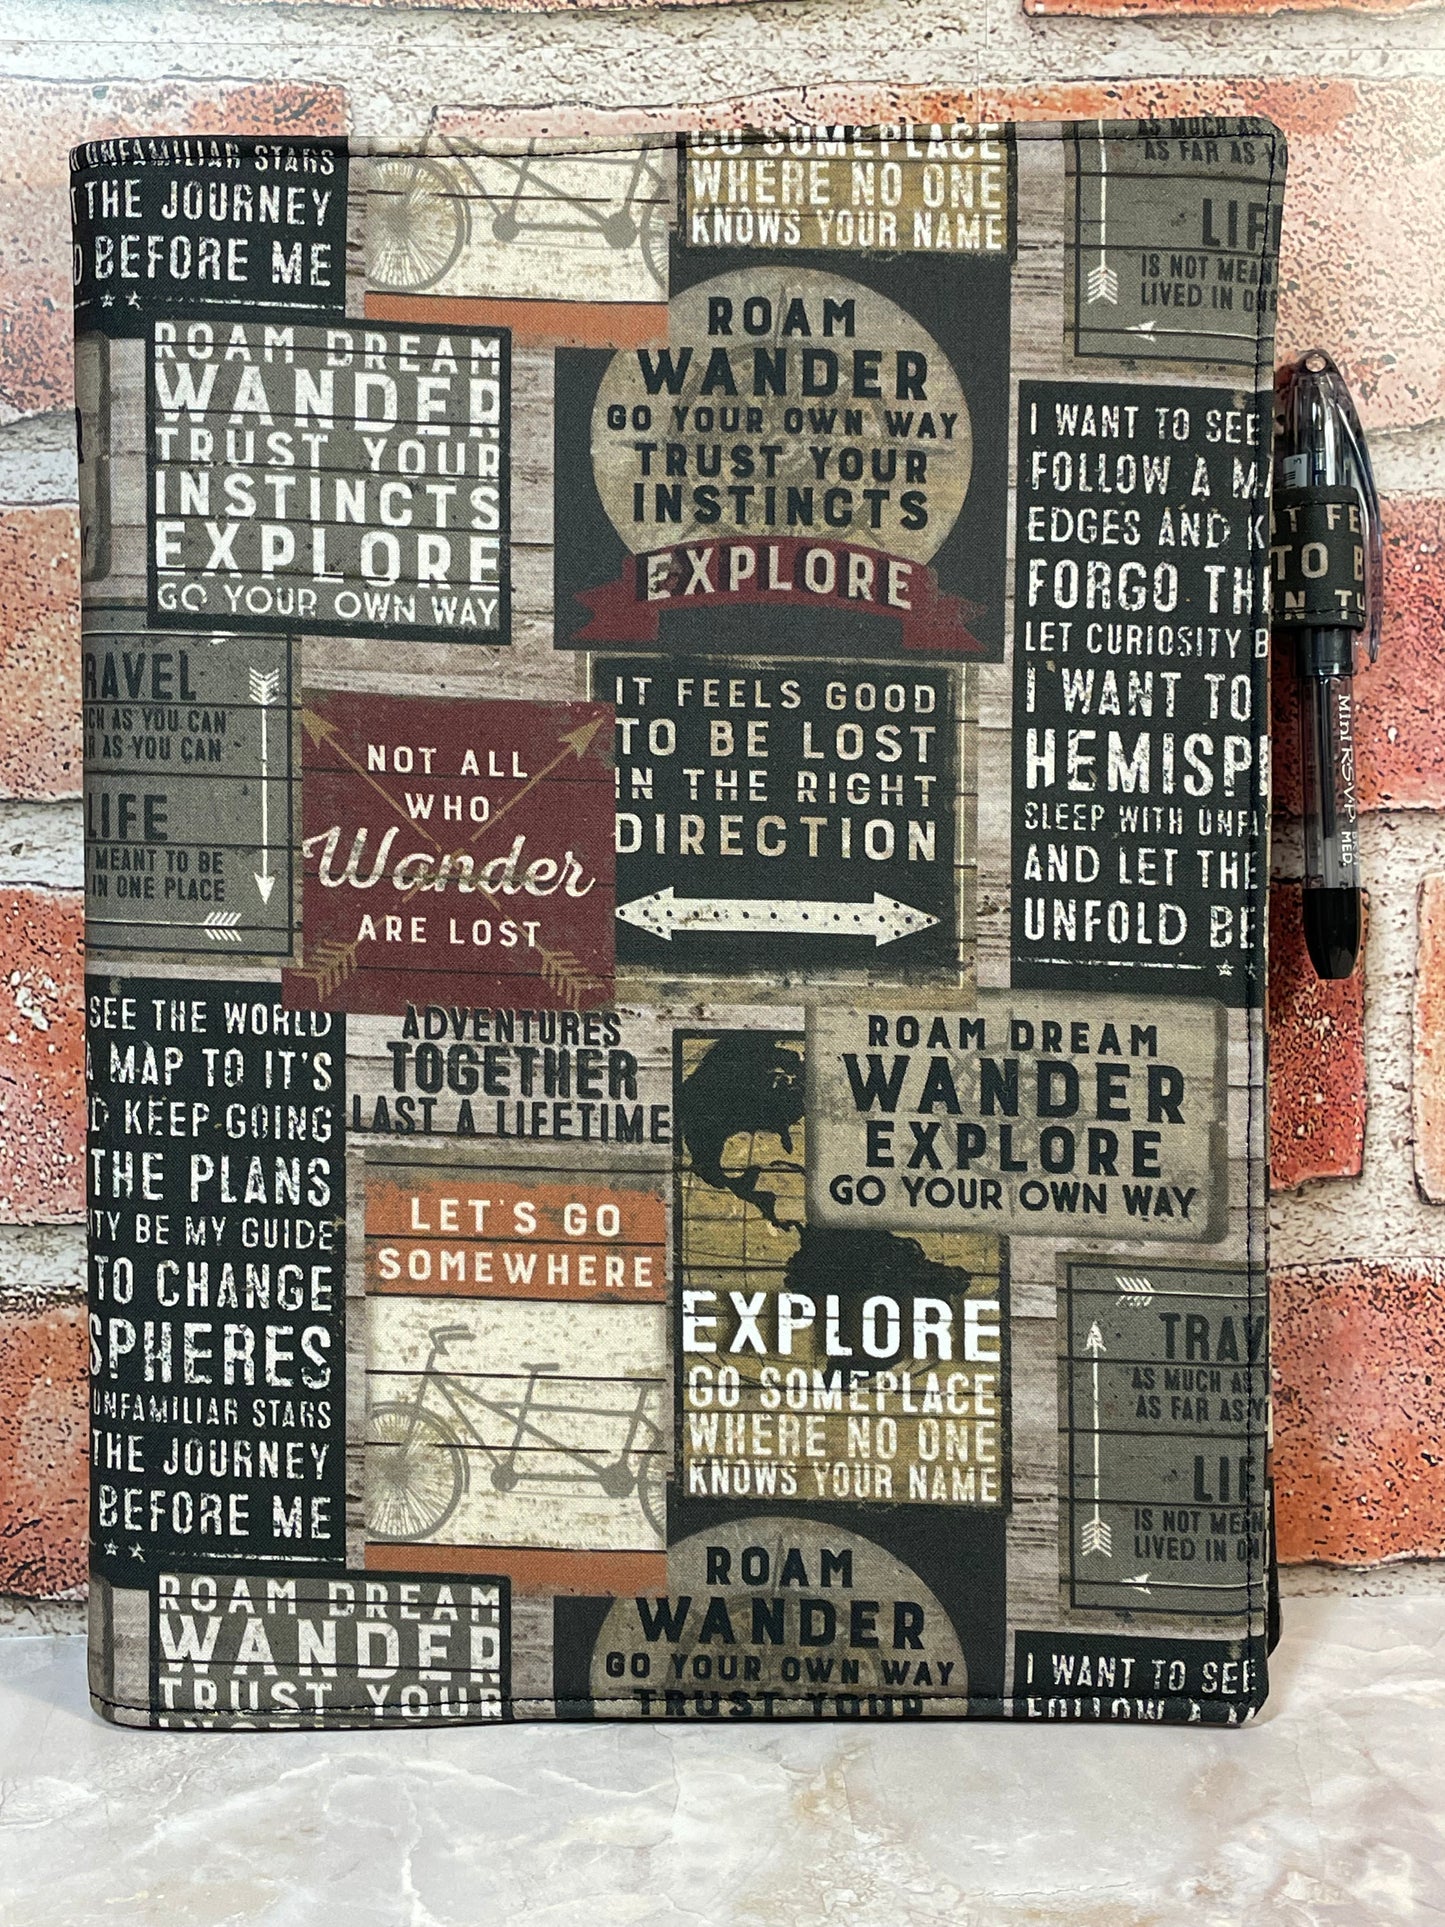 UNFAMILIAR STARS
THE JOURNEY
BEFORE ME
GO SOMEPLACE
WHERE NO ONE
KNOWS YOUR NAME
AS MUCH AS
AS FAR AS
LIF
IS NOT MEAN
LIVED IN ON
ROAM DREAM
WANDER
TRUST YOUR
INSTINCTS
EXPLORE
GO YOUR OWN WAY
ROAM
WANDER
GO YOUR OWN WAY
TRUST YOUR
INSTINCTS
EXPLORE
I WANT TO SEE
FOLLOW A MA
EDGES AND K
FORGO TH
LET CURIOSITY B
I WANT TO
HEMISP
SLEEP WITH UNFA
AND LET THE
UNFOLD BE
IT FE
TO B
N TH
Mini RSVP
MED.
RAVEL
CH AS YOU CAN
AR AS YOU CAN
LIFE
MEANT TO BE
IN ONE PLACE
NOT ALL
WHO
Wander
ARE LOST
IT FEELS GOOD
TO BE LOST
IN THE RIGHT
DIRECTION
SEE THE WORLD
A MAP TO IT'S
D KEEP GOING
THE PLANS
ITY BE MY GUIDE
TO CHANGE
SPHERES
UNFAMILIAR STARS
THE JOURNEY
BEFORE ME
ADVENTURES
TOGETHER
LAST A LIFETIME
LET'S GO
SOMEWHERE
ROAM DREAM
WANDER
EXPLORE
GO YOUR OWN WAY
EXPLORE
GO SOMEPLACE
WHERE NO ONE
KNOWS YOUR NAME
TRAV
AS MUCH AS Y
AS FAR AS Y
LIF
IS NOT MEAN
LIVED IN ON
ROAM DREAM
WANDER
TRUST YOUR
ROAM
WANDER
GO YOUR OWN WAY
TRUST YOUR
I WANT TO SEE
FOLLOW A M